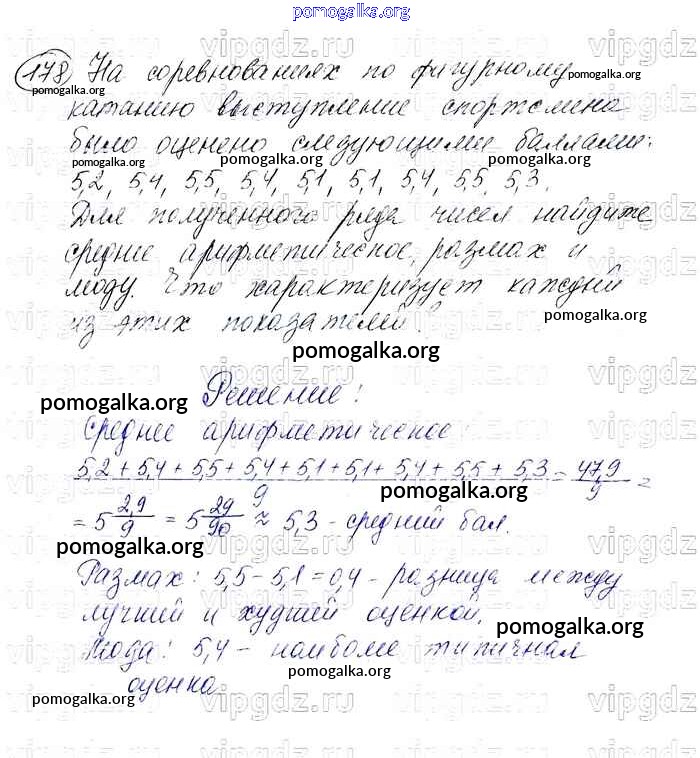 pomogalka.org
178 На соревнованиях по фигурному
катанию выступление спортсмена
было оценено следующими баллами:
5,2, 5,4, 5,5, 5,4, 5,1, 5,1, 5,4, 5,5, 5,3.
Для полученного ряда чисел найдите
среднее арифметическое, размах и
моду. Что характеризует каждый
из этих показателей?
pomogalka.org
Решение:
pomogalka.org
Среднее арифметическое
5,2 + 5,4 + 5,5 + 5,4 + 5,1 + 5,1 + 5,4 + 5,5 + 5,3 / 9 = 47,9 / 9 =
= 5 2,9/9 = 5 29/90 ≈ 5,3 - средний бал.
pomogalka.org
Размах: 5,5 - 5,1 = 0,4 - разница между
лучшей и худшей оценкой.
pomogalka.org
Мода: 5,4 - наиболее типичная
оценка
pomogalka.org